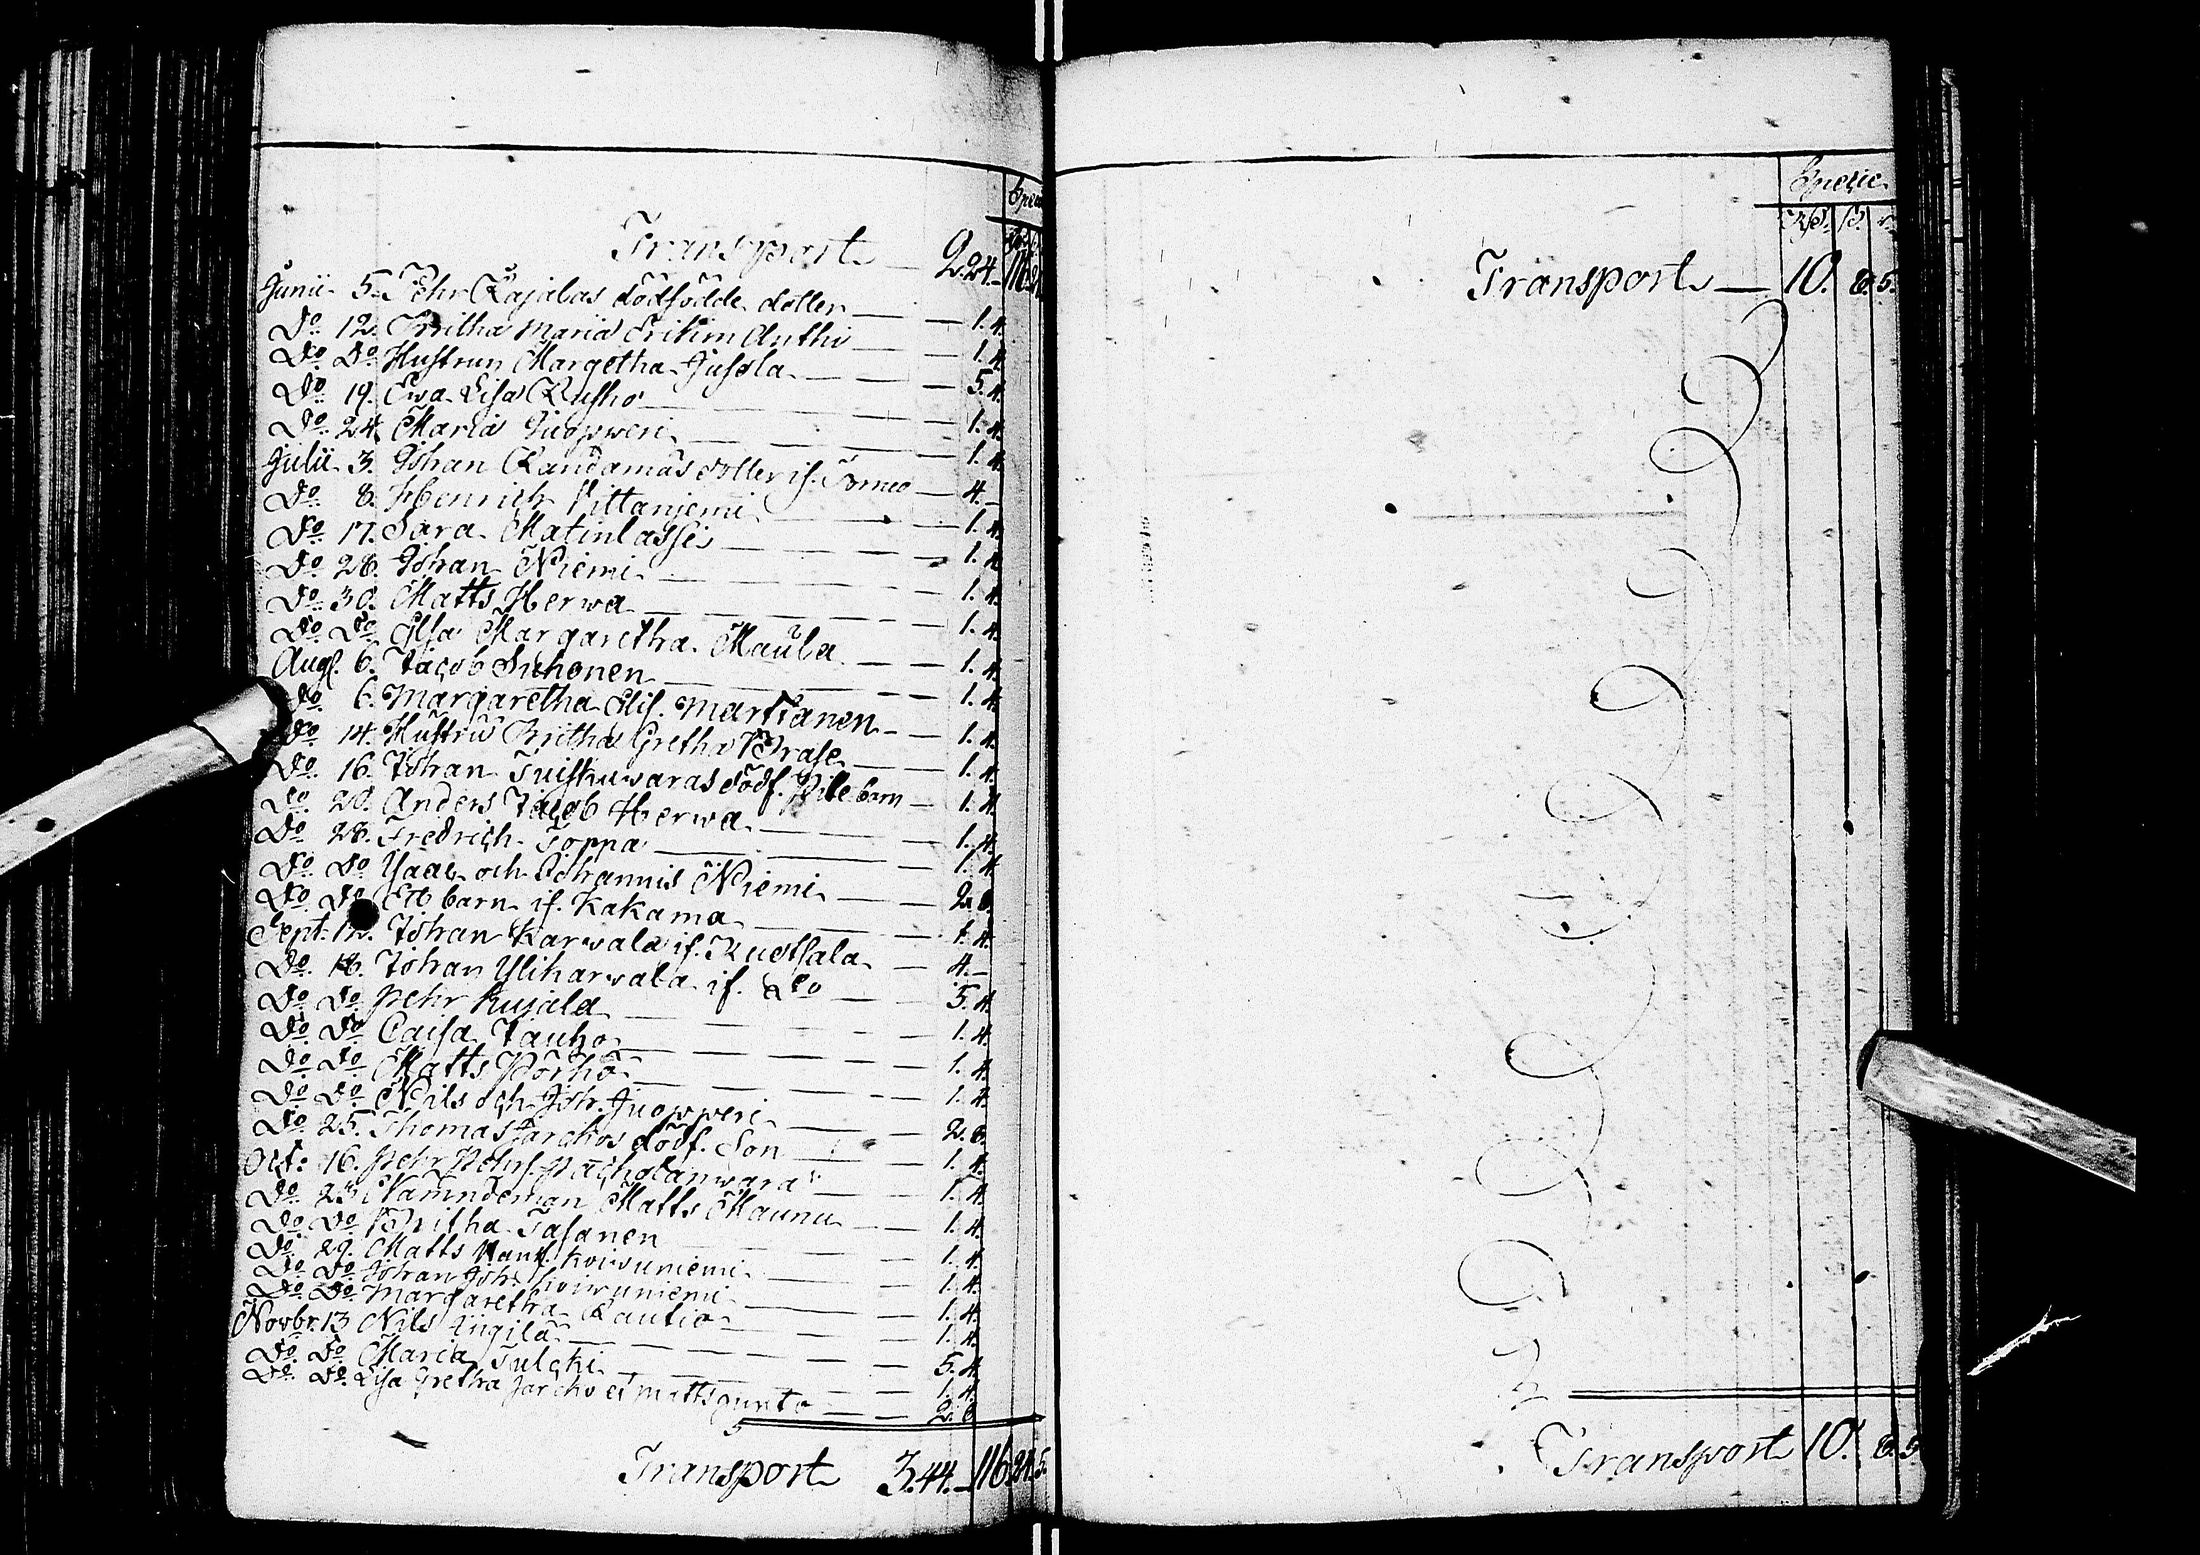 Specie
Transport 2.24.– 116.21
Junii 5. Pehr Rajalas dödfödde dotter — 1.4.
Do. 12. Britha Maria Erikin Anthi — 1.4.
Do. Do. Hustrun Margetha Jusola — 5.4.
Do. 19. Ewa Lisa Rusko — 1.4.
Do. 24. Maria Juopperi — 1.4.
Julii 3. Johan Kandamas dotter if. Torneo — 4.–
Do. 8. Henrich Vittaniemi — 1.4.
Do. 17. Sara Matinlassi — 1.4.
Do. 28. Johan Niemi — 1.4.
Do. 30. Matts Herwa — 1.4.
Do. Do. Elsa Margaretha Maula — 1.4.
Aug. 6. Jacob Suhonen — 1.4.
Do. 6. Margaretha Elis. Martianen — 1.4.
Do. 14. Hustru Britha Gretha Brase — 1.4.
Do. 16. Johan Tuiskuwaras dödf. barn — 1.4.
Do. 20. Anders Jacob Herwa — 1.4.
Do. 28. Fredrich Toppa — 1.4
Do. Do. Isaac och Johannis Niemi — 2.8.
Do. Do. Ett barn if. Kakama — 1.4.
Sept. 12. Johan Karwala if. Ruotsala — 4.–
Do. 18. Johan Yliharwala if. Do — 5.4.
Do. Do. Pehr Kujala — 1.4.
Do. Do. Caisa Tauho — 1.4.
Do. Do. Matts Pörhö — 1.4.
Do. Do. Nils och Joh. Juopperi — 2.8.
Do. 25. Thomas Jarchos dödf. Son — 1.4.
Oct. 16. Pehr Pehrs. Pacholanwara — 1.4.
Do. 23. Nämndeman Matts Maunu — 1.4.
Do. Do. Britha Tasanen — 1.4.
Do. 29. Matts Koiwuniemi — 1.4.
Do. Do. Johan Joh. Koiwuniemi — 1.4.
Do. Do. Margaretha Rautio — 1.4.
Novbr. 13 Nils — 5.4.
Do. Do. Maria Tulcki — 1.4.
Do. Do. Lisa Gretha Jarcho — 2.8
Transport 3.44.– 116.21.5.
Specie
Transport — 10. 8.5.
Transport 10. 8.5